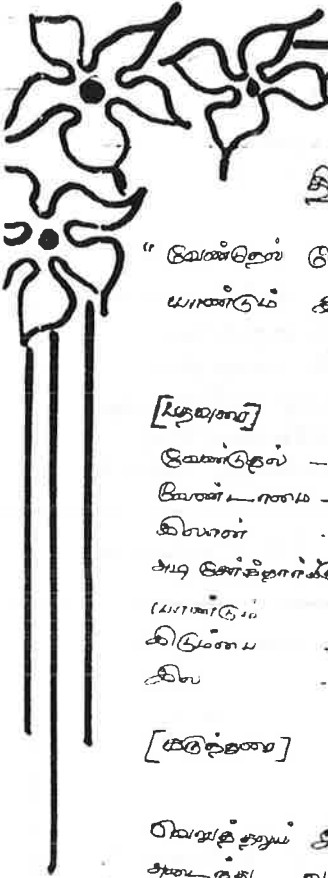 " வேண்டுதல்
யாண்டும்
[பதவுரை]
வேண்டுதல் —
வேண்டாமை -
இலான் -
அடி சேர்ந்தார்க்கு
யாண்டும்
இடும்பை -
இல -
[கருத்துரை]
வெறுத்தலும்